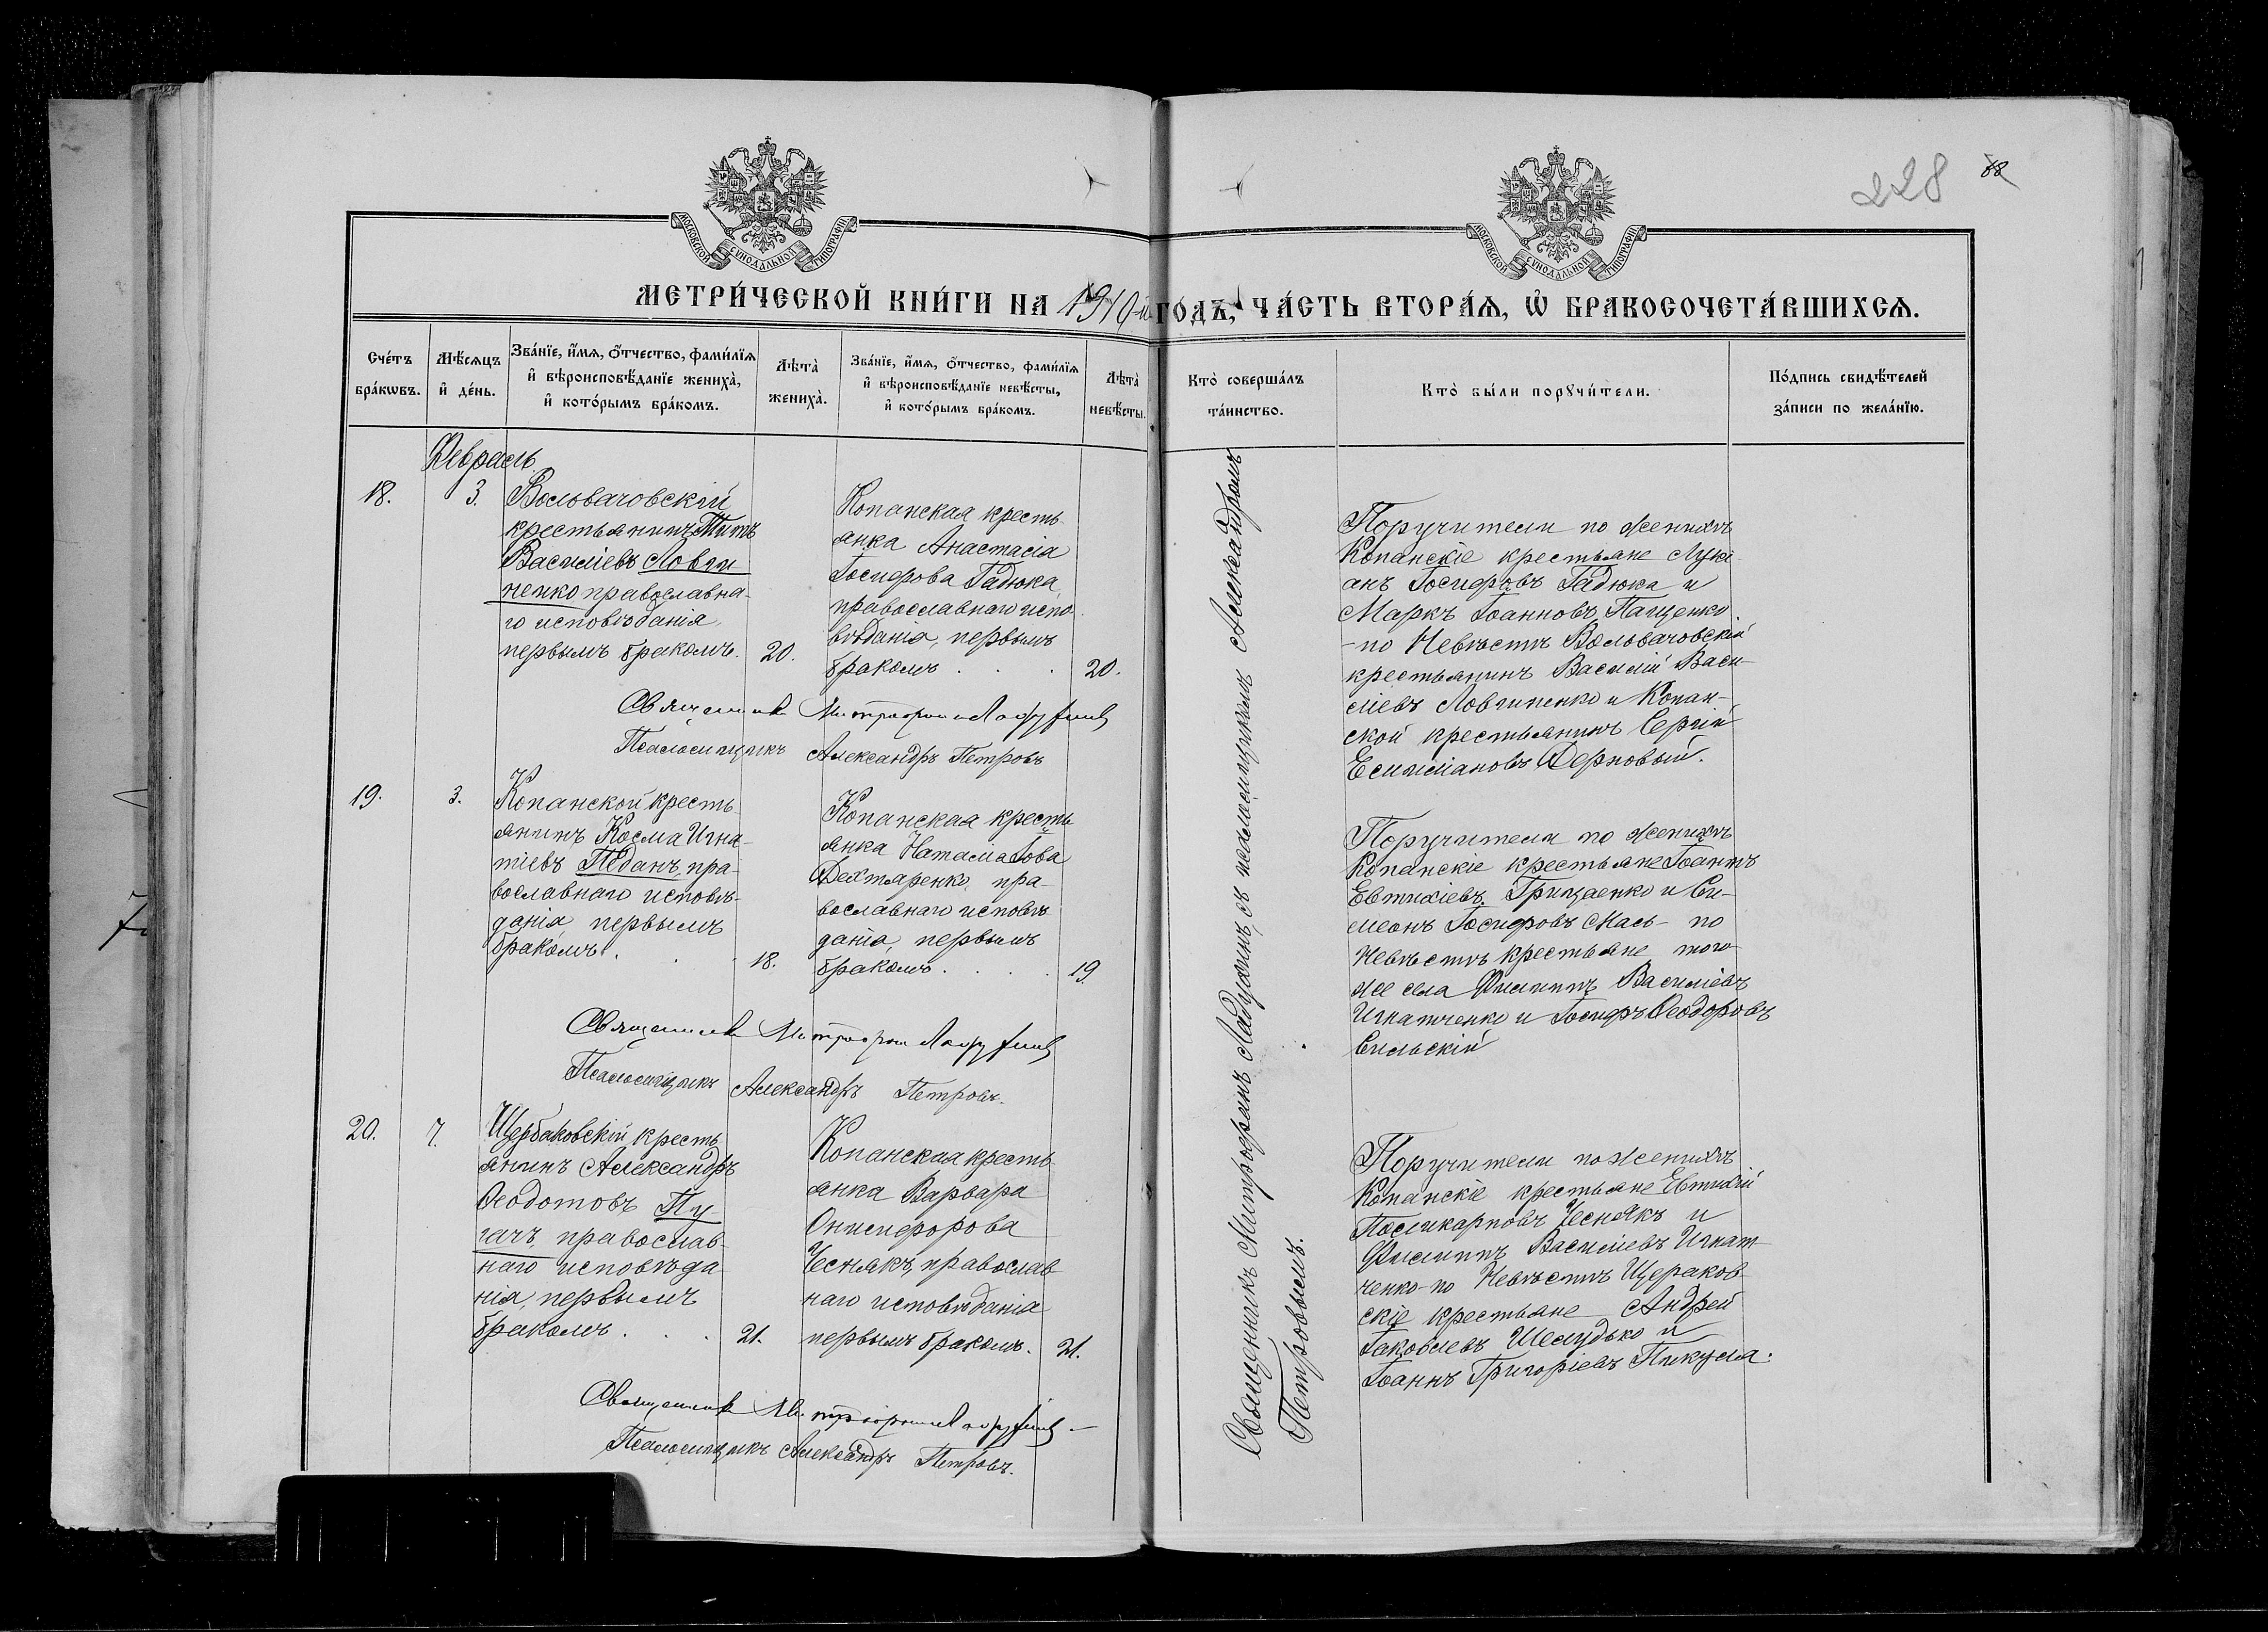 228 88
МОСКОВСКОЙ СѴНОДАЛЬНОЙ ТИПОГРАФІИ
МОСКОВСКОЙ СѴНОДАЛЬНОЙ ТИПОГРАФІИ
МЕТРИ́ЧЕСКОЙ КНИ́ГИ НА 1910-й ГОДЪ, ЧА́СТЬ ВТОРА́Ѧ, Ѽ БРАКОСОЧЕТА́ВШИХСѦ.
Сче́тъ
бра́кѡвъ.
Мѣ́сѧцъ
и҆ де́нь.
Зва́нїе, и҆́мѧ, ѻ҆́тчество, фами́лїѧ
и҆ вѣроисповѣ́данїе жениха̀,
и҆ кото́рымъ бра́комъ.
Лѣ́та̀
жениха̀.
Зва́нїе, и҆́мѧ, ѻ҆́тчество, фами́лїѧ
и҆ вѣроисповѣ́данїе невѣ́сты,
и҆ кото́рымъ бра́комъ.
Лѣ́та̀
невѣ́сты.
Кто̀ соверша́лъ
та́инство.
Кто̀ бы́ли порꙋчи́тели.
По́дпись свидѣ́телей
за́писи по жела́нїю.
Февраль.
18.
3.
Вольвачовскій
крестьянинъ Титъ
Василіевъ Ловчи
ненко православна-
го исповѣданія,
первымъ бракомъ.
20.
Копанская кресть
янка Анастасія
Іосифова Гадюка,
православнаго испо
вѣданія, первымъ
бракомъ . . .
20.
Поручители по женихѣ
Копанскіе крестьяне Лукі
анъ Іосифовъ Гадюка и
Маркъ Іоанновъ Пащенко
-по Невѣстѣ Вольвачовскій
крестьянинъ Василій Васи-
ліевъ Ловчиненко и Копан-
ской крестьянинъ Сергій
Ександровъ Дерновый.
Священникъ Митрофанъ
Псаломщикъ Александръ Петровъ
19.
3.
Копанской кресть
янинъ Косма Игна-
тіевъ Педанъ, пра-
вославнаго исповѣ-
данія, первымъ
бракомъ . . .
18.
Копанская кресть
янка Наталія Іова
Дехтяренко, пра-
вославнаго исповѣ
данія, первымъ
бракомъ . . . .
19.
Поручители по женихѣ
Копанскіе крестьяне Іоаннъ
Евтихіевъ Грицаенко и Си-
меонъ Іосифовъ Мась - по
Невѣстѣ крестьяне того-
же села Филиппъ Василіевъ
Игнатченко и Іосифъ Ѳеодоровъ
Сильскій
Священникъ Митрофанъ
Псаломщикъ Александръ Петровъ.
20.
7.
Щербаковскій кресть
янинъ Александръ
Ѳеодотовъ Пу-
гачъ, православ-
наго исповѣда
нія, первымъ
бракомъ . . .
21.
Копанская кресть
янка Варвара
Онисифорова
Чеснякъ, православ-
наго исповѣданія
первымъ бракомъ.
21.
Поручители по женихѣ
Копанскіе крестьяне Евтихій
Поликарповъ Чеснякъ и
Филиппъ Василіевъ Игнат-
ченко-по Невѣстѣ Щераков-
скіе крестьяне Андрей
Іаковлевъ Шелудько и
Іоаннъ Григоріевъ Пикула.
Священникъ Митрофанъ
Псаломщикъ Александръ Петровъ.
Священникъ Митрофанъ съ псаломщикомъ Александромъ
Петровымъ.